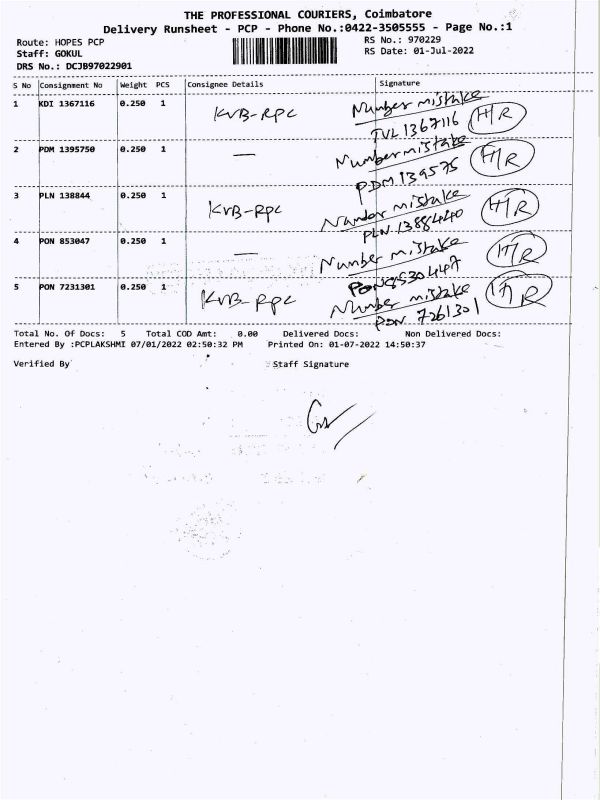 THE PROFESSIONAL COURIERS, Coimbatore
Delivery Runsheet - PCP - Phone No.:0422-3505555 - Page No.:1
Route: HOPES PCP
Staff: GOKUL
DRS No.: DCJB97022901
RS No.: 970229
RS Date: 01-Jul-2022
S No Consignment No Weight PCS Consignee Details Signature
1 KDI 1367116 0.250 1 KVB-RPC Number mistake
TVL 1367116 H/R
2 PDM 1395750 0.250 1 — Number mistake
PDM 139575 H/R
3 PLN 138844 0.250 1 KVB-RPC Number mistake
PLN 13884440 H/R
4 PON 853047 0.250 1 — Number mistake
PON 8530447 H/R
5 PON 7231301 0.250 1 KVB-RPC Number mistake
PON 7261301 H/R
Total No. Of Docs: 5 Total COD Amt: 0.00 Delivered Docs: Non Delivered Docs:
Entered By :PCPLAKSHMI 07/01/2022 02:50:32 PM Printed On: 01-07-2022 14:50:37
Verified By Staff Signature